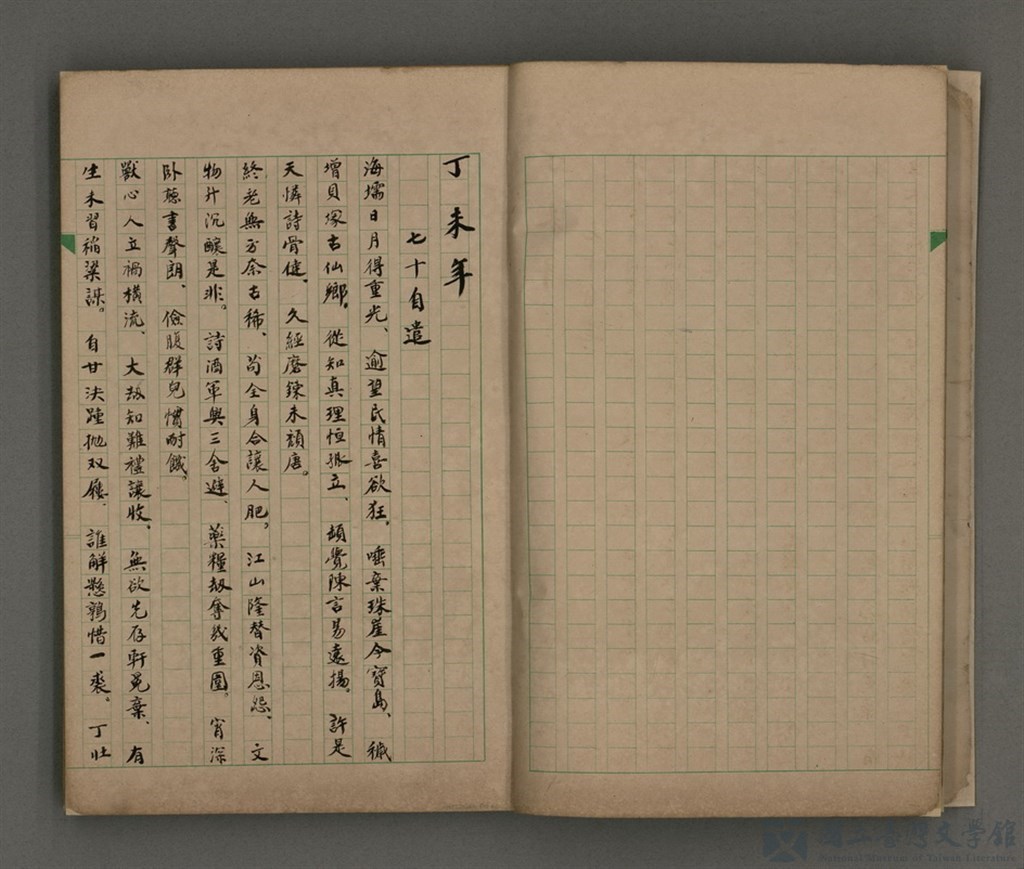 丁未年
七十自遣
海壖日月得重光、逾望民情喜欲狂。唾棄珠崖今寶島、穢
增貝塚古仙鄉。從知真理恒孤立、頓覺陳言易遠揚。許是
天憐詩骨健、久經磨鍊未頹唐。
終老無方奈古稀、苟全身合讓人肥。江山隆替資恩怨、文
物升沉釀是非。詩酒軍興三舍避、藥糧劫奪幾重圍。宵深
卧聽書聲朗、儉腹群兒慣耐饑。
獸心人立禍橫流、大劫知難禮讓收。無欲先存軒冕棄、有
生未習稻粱謀。自甘決踵拋双屨、誰解懸鶉惜一裘。丁壯
國立臺灣文學館
National Museum of Taiwan Literature